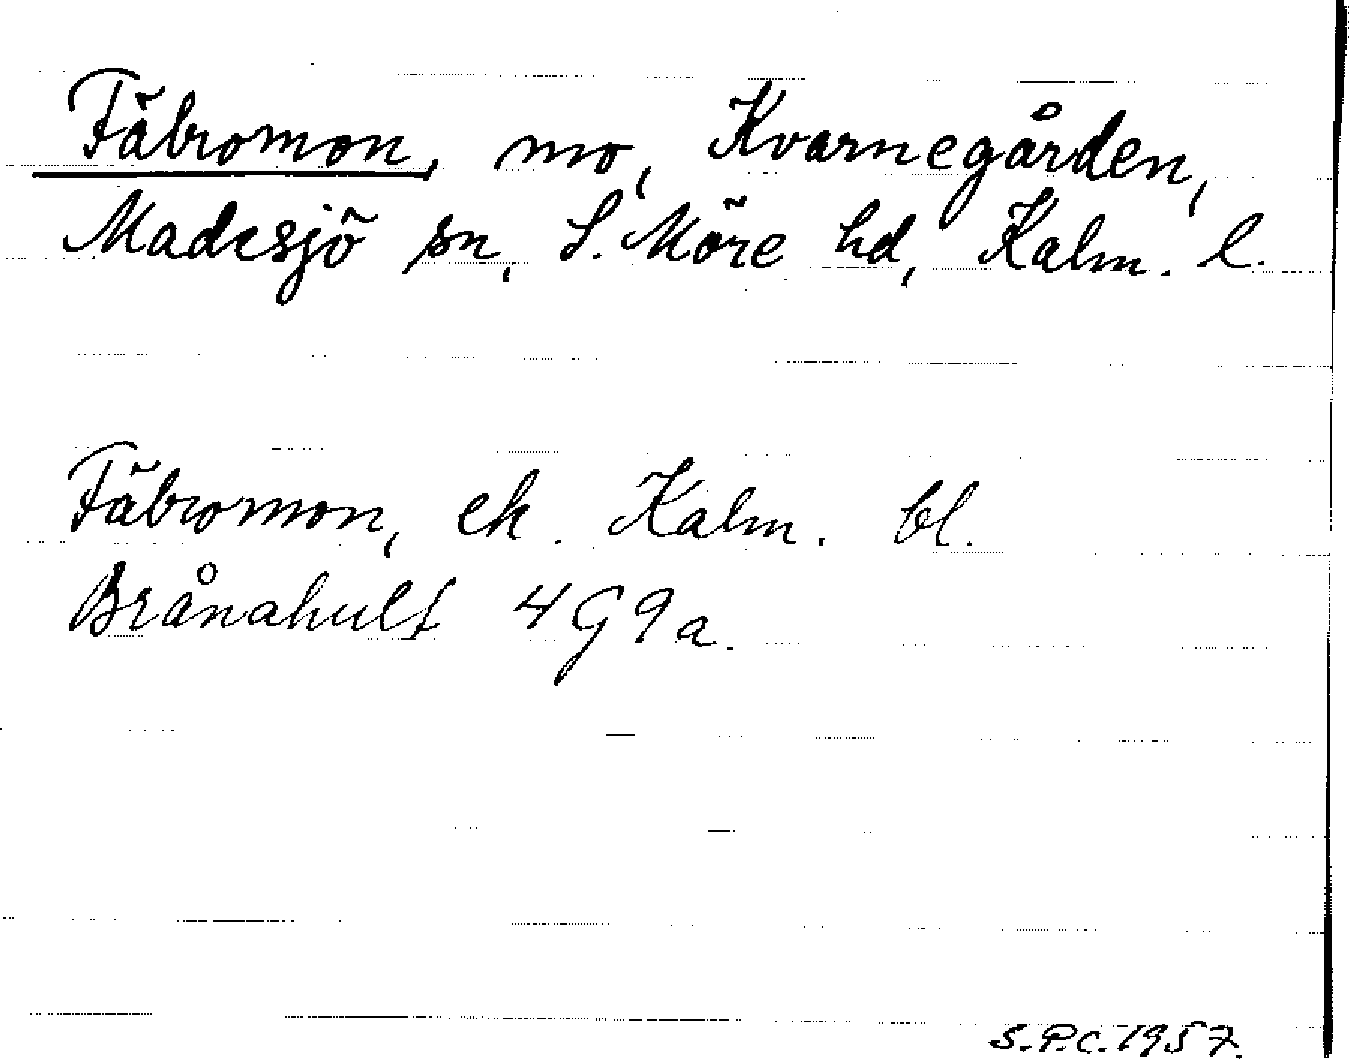 Fäbromon, mo, Kvarnegården,
Madesjö sn, S. Möre hd, Kalm. l.
Fäbromon, ek. Kalm. bl.
Brånahult 4G9a.
S.P.C. 1957.